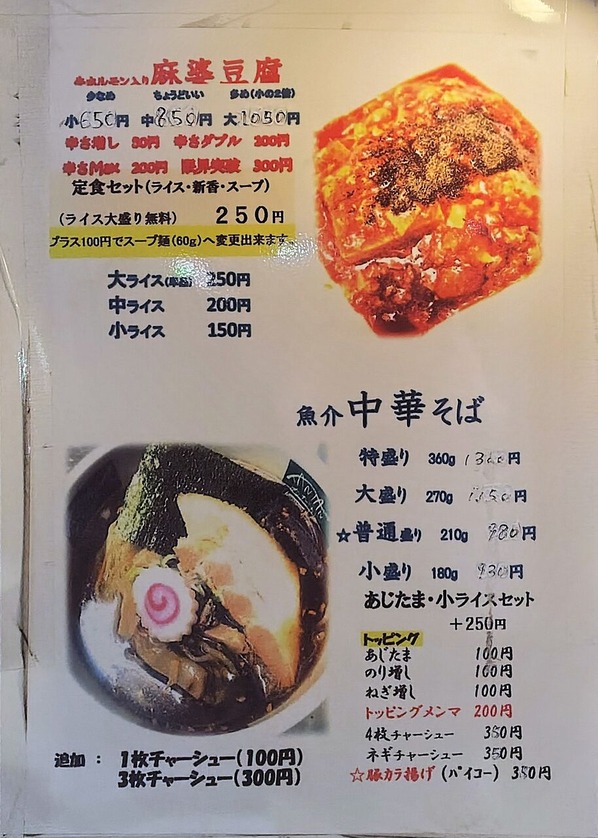 辛ホルモン入り麻婆豆腐
少なめ ちょうどいい 多め(小の2倍)
小650円 中850円 大1050円
辛さ増し 50円 辛さダブル 200円
辛さMax 200円 限界突破 300円
定食セット(ライス・新香・スープ)
(ライス大盛り無料) 250円
プラス100円でスープ麺(60g)へ変更出来ます。
大ライス 250円
中ライス 200円
小ライス 150円
魚介 中華そば
特盛り 360g 円
大盛り 270g 1150円
☆普通盛り 210g 980円
小盛り 180g 930円
あじたま・小ライスセット
+250円
トッピング
あじたま 100円
のり増し 100円
ねぎ増し 100円
トッピングメンマ 200円
4枚チャーシュー 350円
ネギチャーシュー 350円
☆豚カラ揚げ(パイコー) 350円
追加: 1枚チャーシュー(100円)
3枚チャーシュー(300円)